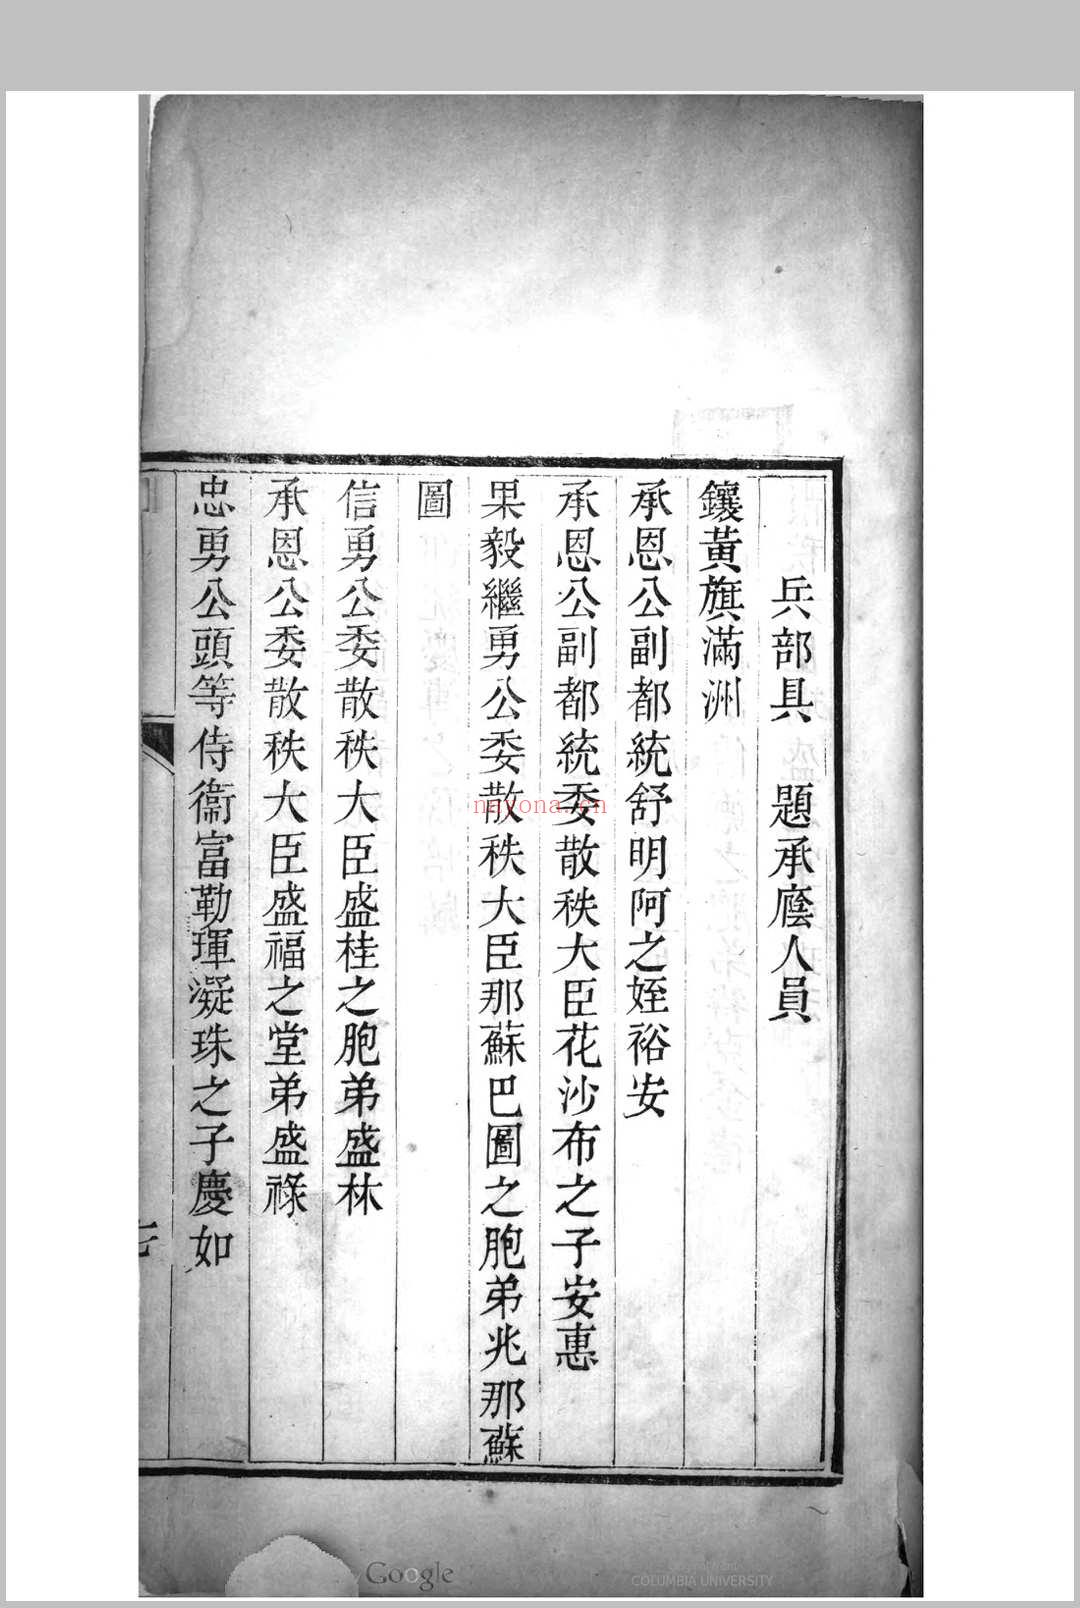 兵部具　題承廕人員
鑲黃旗滿洲
承恩公副都統舒明阿之姪裕安
承恩公副都統委散秩大臣花沙布之子安惠
果毅繼勇公委散秩大臣那蘇巴圖之胞弟兆那蘇
圖
信勇公委散秩大臣盛桂之胞弟盛林
承恩公委散秩大臣盛福之堂弟盛祿
忠勇公頭等侍衞富勒琿凝珠之子慶如
七
nayona.cn
Google
COLUMBIA UNIVERSITY